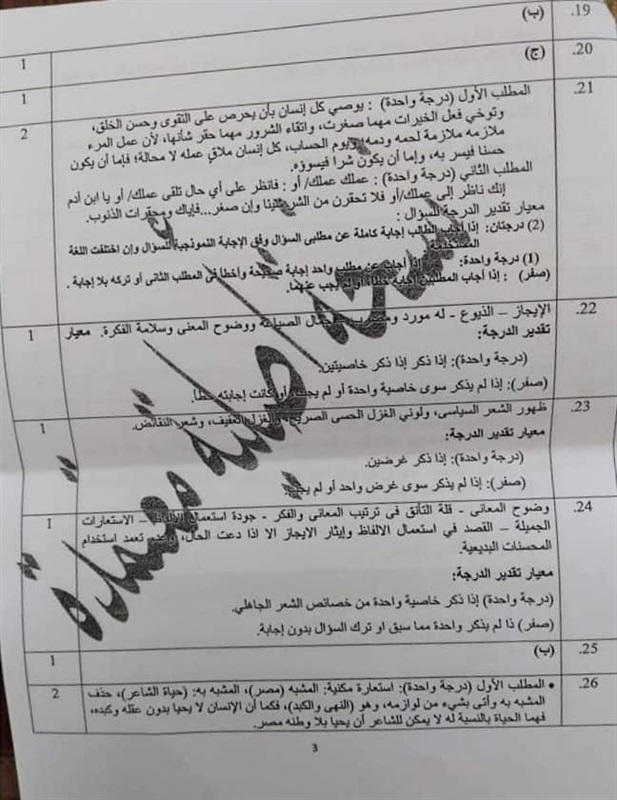 19. (ب)
20. (ج) 1
21. المطلب الأول (درجة واحدة) : يوصي كل إنسان بأن يحرص على التقوى وحسن الخلق، 1
وتوخي فعل الخيرات مهما صغرت، واتقاء الشرور مهما حقر شأنها، لأن عمل المرء 2
ملازمه ملازمة لحمه ودمه، ويوم الحساب، كل إنسان ملاق عمله لا محالة؛ فإما أن يكون
حسنا فيسر به، وإما أن يكون شرا فيسوؤه.
المطلب الثاني (درجة واحدة) : عملك عملك/ أو : فانظر على أي حال تلقى عملك/ أو يا ابن آدم
إنك ناظر إلى عملك/ أو فلا تحقرن من الشر شيئا وإن صغر...فإياك ومحقرات الذنوب.
معيار تقدير الدرجة للسؤال :
(2) درجتان: إذا أجاب الطالب إجابة كاملة عن مطلبى السؤال وفق الإجابة النموذجية للسؤال وإن اختلفت اللغة
المستخدمة.
(1) درجة واحدة: إذا أجاب عن مطلب واحد إجابة صحيحة وأخطأ فى المطلب الثانى أو تركه بلا إجابة .
(صفر) : إذا أجاب المطلبين إجابة خطأ، أو لم يجب عنهما.
22. الإيجاز – الذيوع - له مورد الصياغة ووضوح المعنى وسلامة الفكرة. معيار 1
تقدير الدرجة:
(درجة واحدة): إذا ذكر إذا ذكر خاصيتين.
(صفر): إذا لم يذكر سوى خاصية واحدة أو لم يجب، أو كانت إجابته خطأ.
23. ظهور الشعر السياسى، ولوني الغزل الحسى الصريح، والغزل العفيف، وشعر النقائض. 1
معيار تقدير الدرجة:
(درجة واحدة): إذا ذكر غرضين.
(صفر): إذا لم يذكر سوى غرض واحد أو لم يجب.
24. وضوح المعانى - قلة التأنق فى ترتيب المعانى والفكر - جودة استعمال الألفاظ – الاستعارات 1
الجميلة – القصد في استعمال الالفاظ وإيثار الايجاز الا اذا دعت الحال، وعدم تعمد استخدام
المحسنات البديعية.
معيار تقدير الدرجة:
(درجة واحدة) إذا ذكر خاصية واحدة من خصائص الشعر الجاهلي.
(صفر) ذا لم يذكر واحدة مما سبق او ترك السؤال بدون إجابة.
25. (ب) 1
26. • المطلب الأول (درجة واحدة): استعارة مكنية: المشبه (مصر)، المشبه به: (حياة الشاعر)، حذف 2
المشبه به وأتى بشيء من لوازمه، وهو (النهى والكبد)، فكما أن الإنسان لا يحيا بدون عقله وكبده،
فهما الحياة بالنسبة له لا يمكن للشاعر أن يحيا بلا وطنه مصر.
3